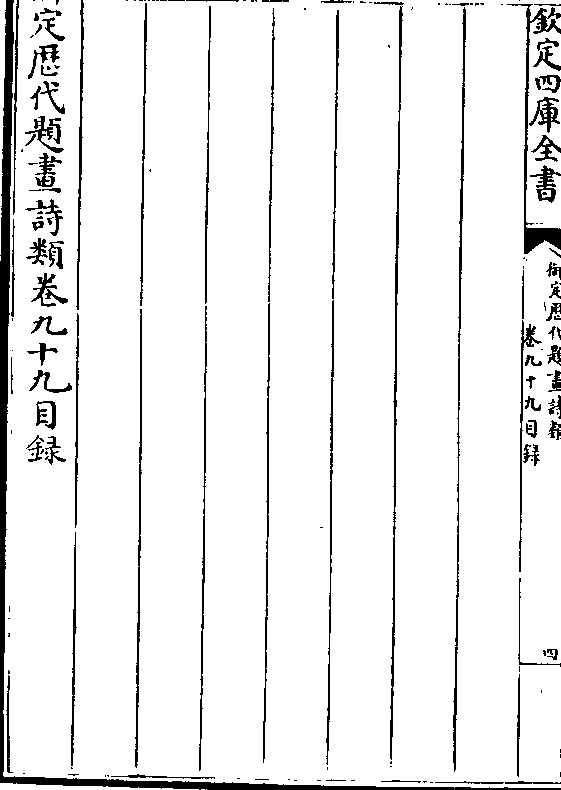 欽定四庫全書
御定歴代題畫詩類
卷九十九目録
四
御定歴代題畫詩類卷九十九目録